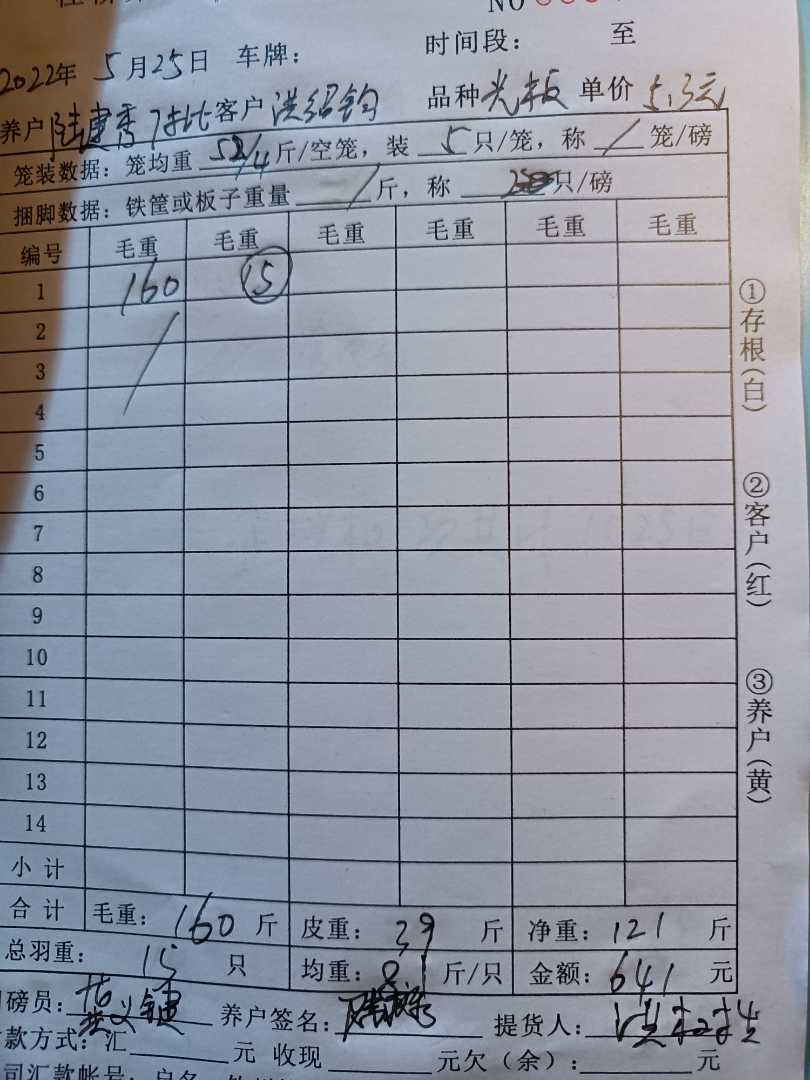 NO
时间段： 至
2022年 5月25日 车牌：
养户 陆建秀 客户 洪绍钧 品种 光板 单价 5.3元
笼装数据：笼均重 52/4 斤/空笼，装 5 只/笼，称 / 笼/磅
捆脚数据：铁筐或板子重量 / 斤，称 只/磅
编号 毛重 毛重 毛重 毛重 毛重 毛重
1 160 15
2
3
4
5
6
7
8
9
10
11
12
13
14
小计
合计 毛重：160 斤 皮重：39 斤 净重：121 斤
总羽重：15 只 均重：8.1 斤/只 金额：641 元
磅员： 养户签名： 提货人：
款方式：汇 元 收现 元欠（余）： 元
司汇款帐号：户名
①存根（白）
②客户（红）
③养户（黄）